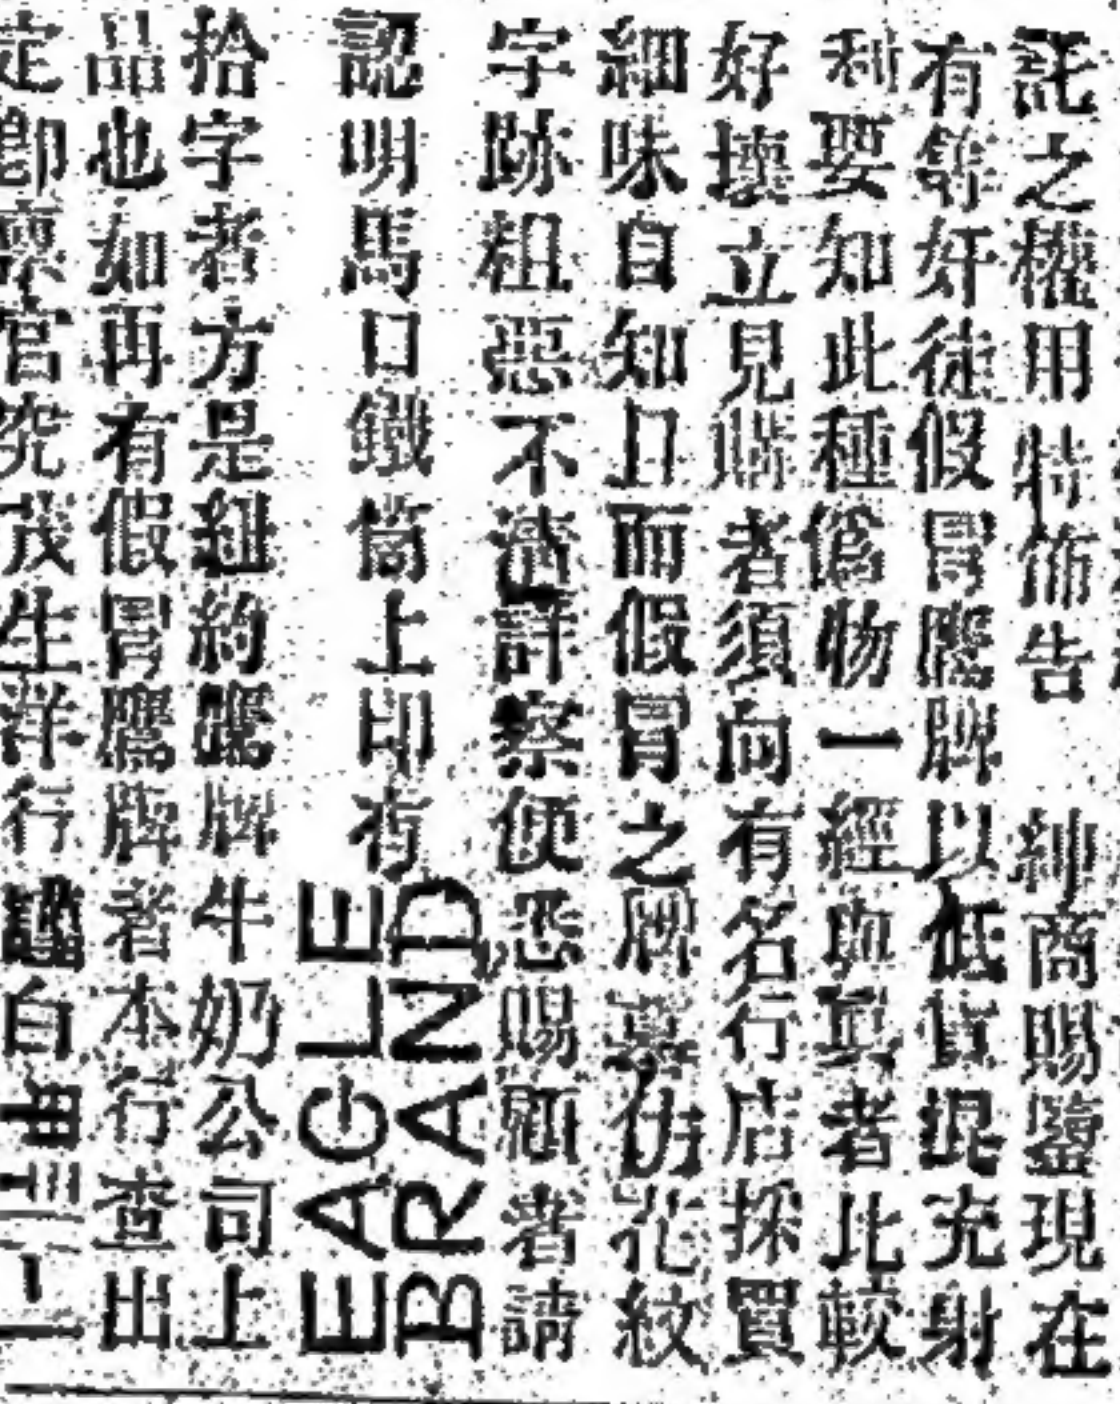 託之權用特飾告 紳商賜鑒現在
有等奸徒假冒鷹牌以低貨混充射
利要知此種僞物一經與眞者比較
好壞立見購者須向有名行店採買
細味自知且而假冒之牌裏仿花紋
字跡粗惡不清詳察便悉賜顧者請
認明馬口鐵筒上印有 EAGLE BRAND
拾字者方是紐約鷹牌牛奶公司上
品也如再有假冒鷹牌者本行查出
定卽稟官究茂生洋行謹白